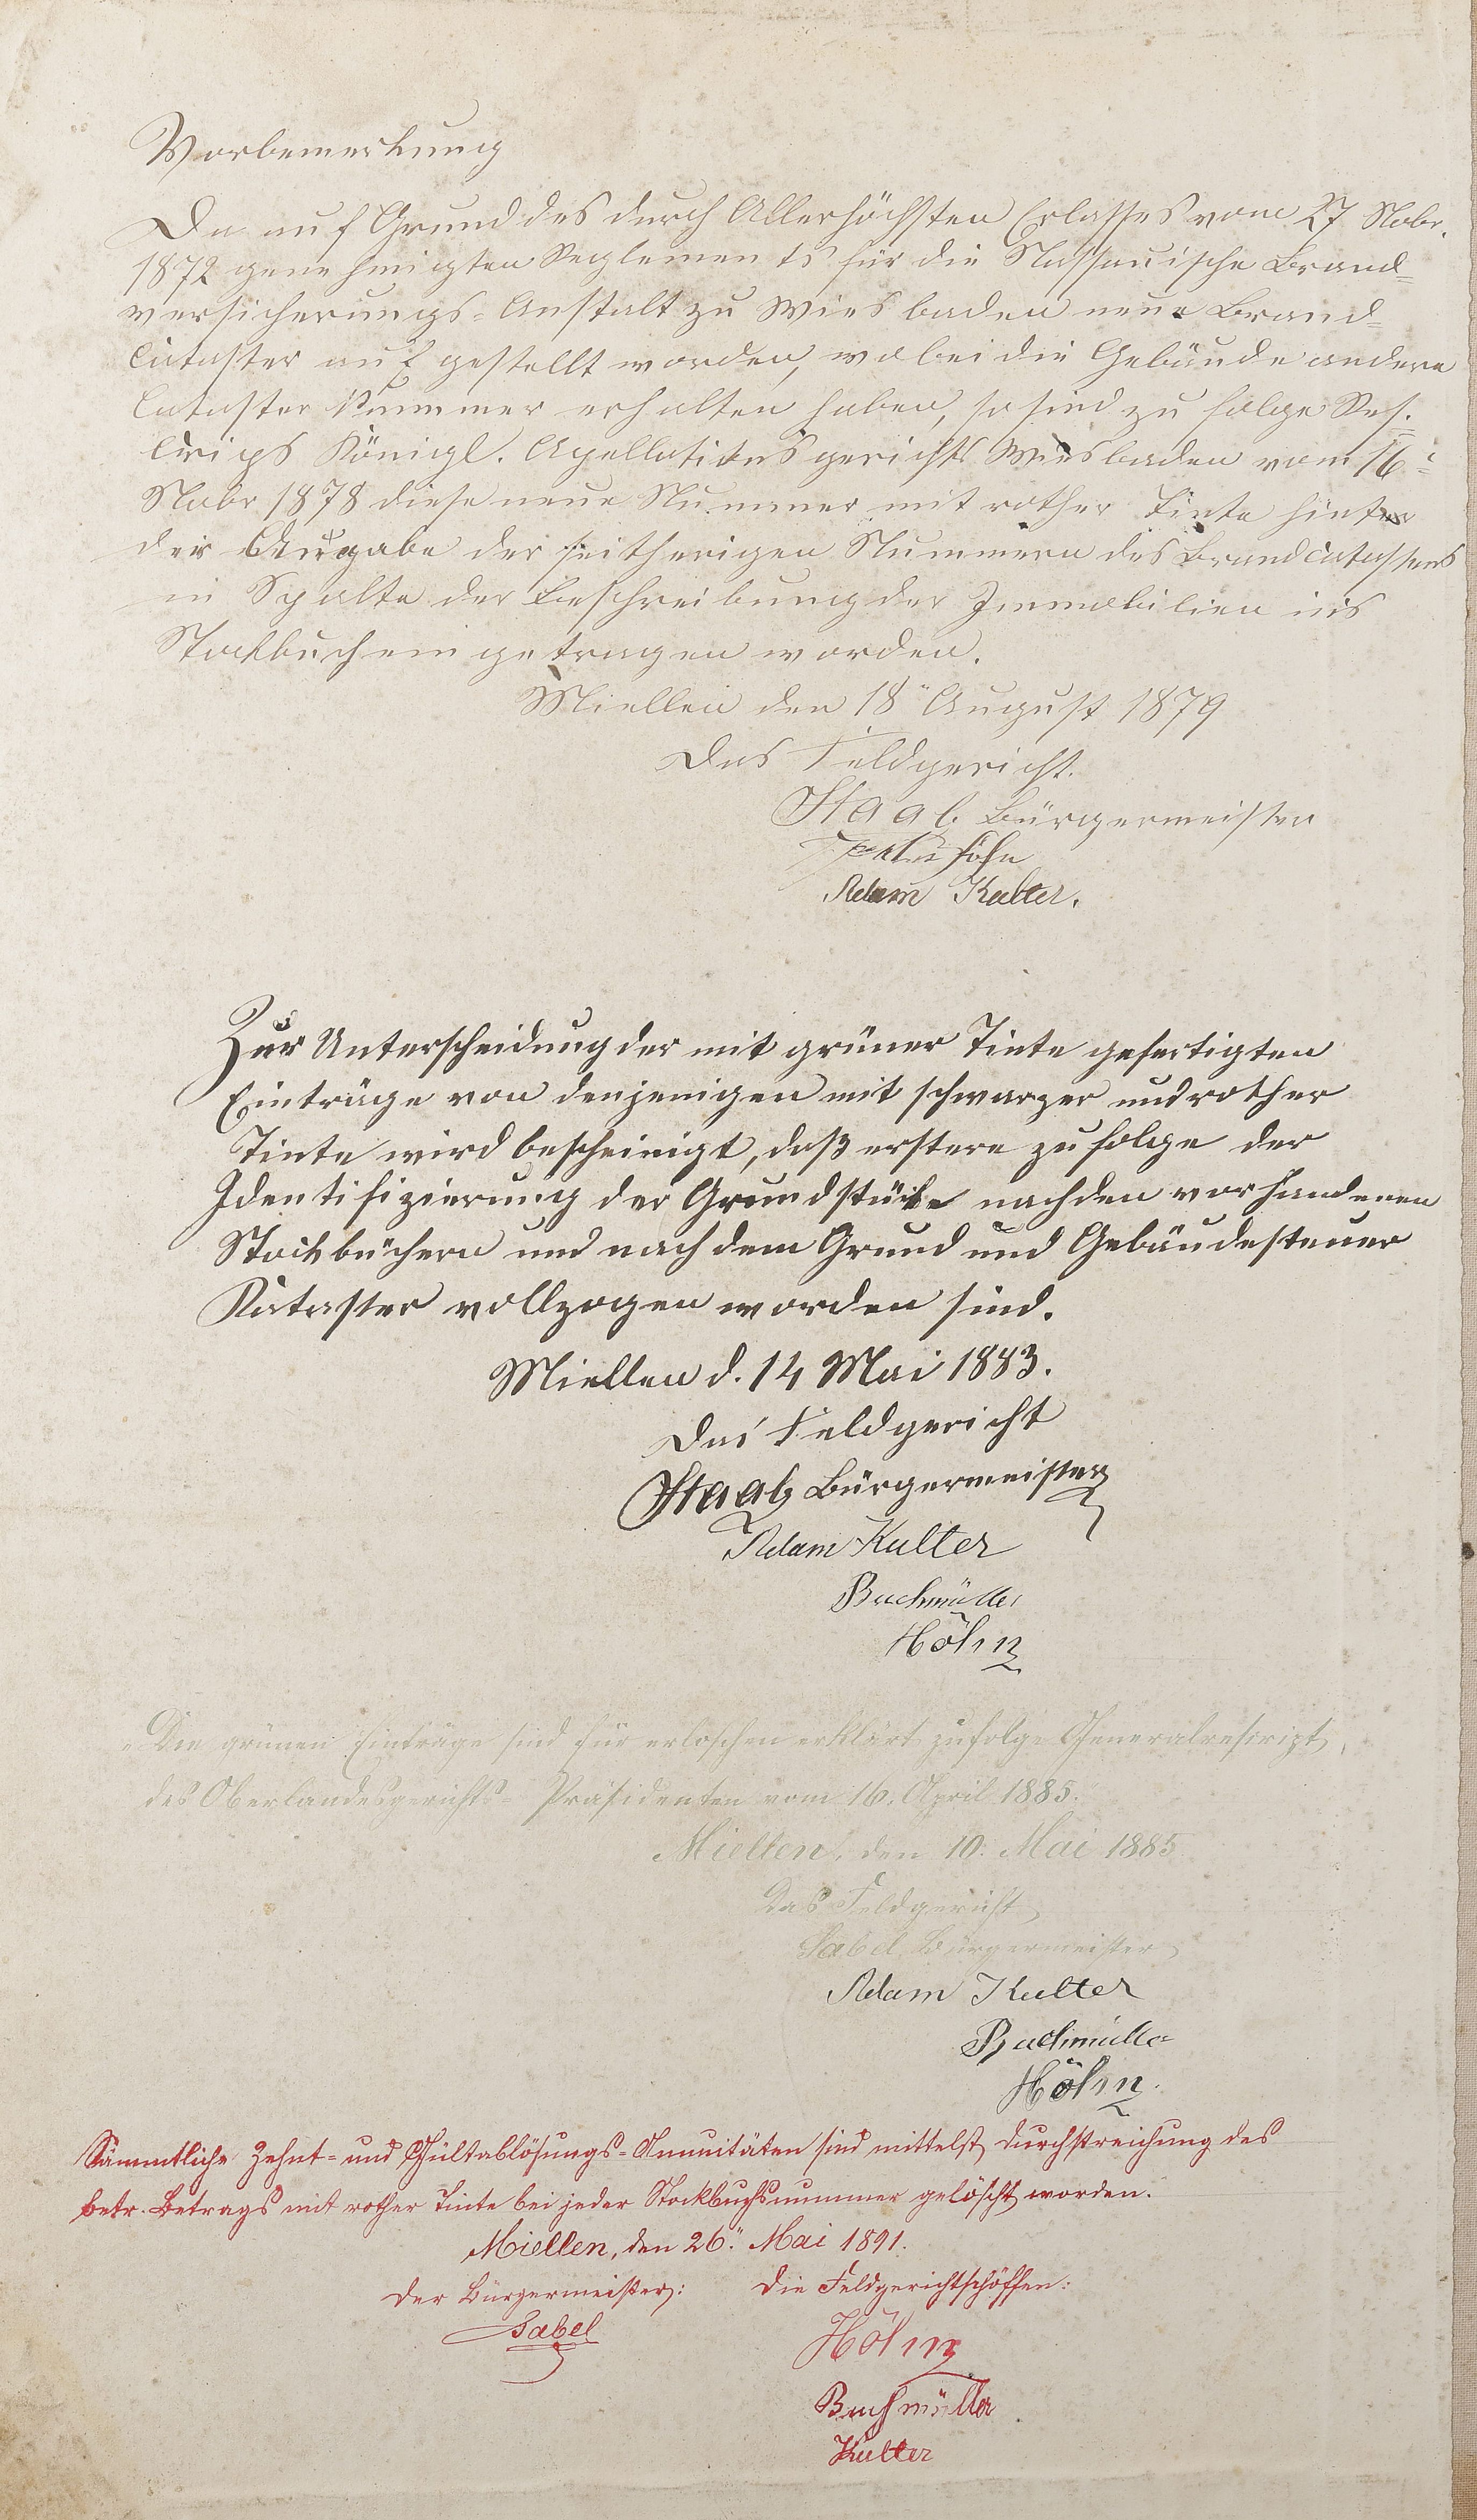 Vorbemerkung
Da auf Grund des durch Allerhöchsten Erlasses vom 27 Nobr.
1872 genehmigten Reglements für die Nassauische Brand=
versicherungs=Anstalt zu Wiesbaden neue Brand=
Cataster aufgestellt worden, wobei die Gebäude andere
Cataster Nummer erhalten haben, so sind zu folge Res=
crips Königl. Apellationsgerichts Wiesbaden vom 16
Nobr 1878 diese neue Nummer mit rother Tinte hinter
der Angabe der seitherigen Nummern des Brandcatasters
in Spalte der Beschreibung der Immobilien ins
Stockbuch eingetragen worden.
Miellen den 18" August 1879
Das Feldgericht.
Staab Bürgermeister
Adam Kulter.
Zur Unterscheidung der mit grüner Tinte gefertigten
Einträge von denjenigen mit schwarzer und rother
Tinte wird bescheinigt, daß erstere zufolge der
Identifizierung der Grundstücke nach den vorhandenen
Stockbüchern und nach dem Grund und Gebäudesteuer
Kataster vollzogen worden sind.
Miellen d. 14 Mai 1883.
Das Feldgericht
Staab Bürgermeister
Adam Kulter
Bachmüller
Höhn
"Die grünen Einträge sind für erloschen erklärt zufolge Generalrescript
des Oberlandesgerichts=Präsidenten vom 16. April 1885."
Miellen, den 10. Mai 1885
Das Feldgericht
Sabel, Bürgermeister
Adam Kulter
Bachmüller
Höhn.
Sämmtliche Zehnt= und Gültablösungs=Annuitäten sind mittelst Durchstreichung des
betr. Betrags mit rother Tinte bei jeder Stockbuchsnummer gelöscht worden.
Miellen, den 26." Mai 1891.
Der Bürgermeister: Die Feldgerichtschöffen:
Sabel Höhn
Bachmüller
Kulter